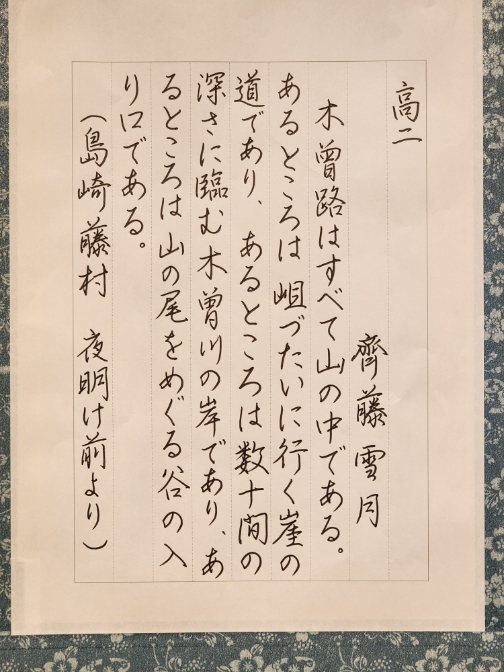 高二
齊藤雪月
木曽路はすべて山の中である。
あるところは岨づたいに行く崖の
道であり、あるところは数十間の
深さに臨む木曽川の岸であり、あ
るところは山の尾をめぐる谷の入
り口である。
（島崎藤村　夜明け前より）